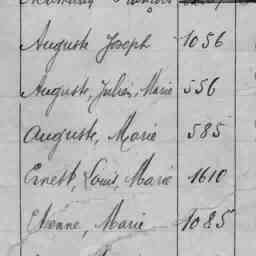 Auguste Joseph 1056
Auguste, Julien, Marie 556
Auguste, Marie 585
Ernest, Louis, Marie 1610
Etienne, Marie 1085